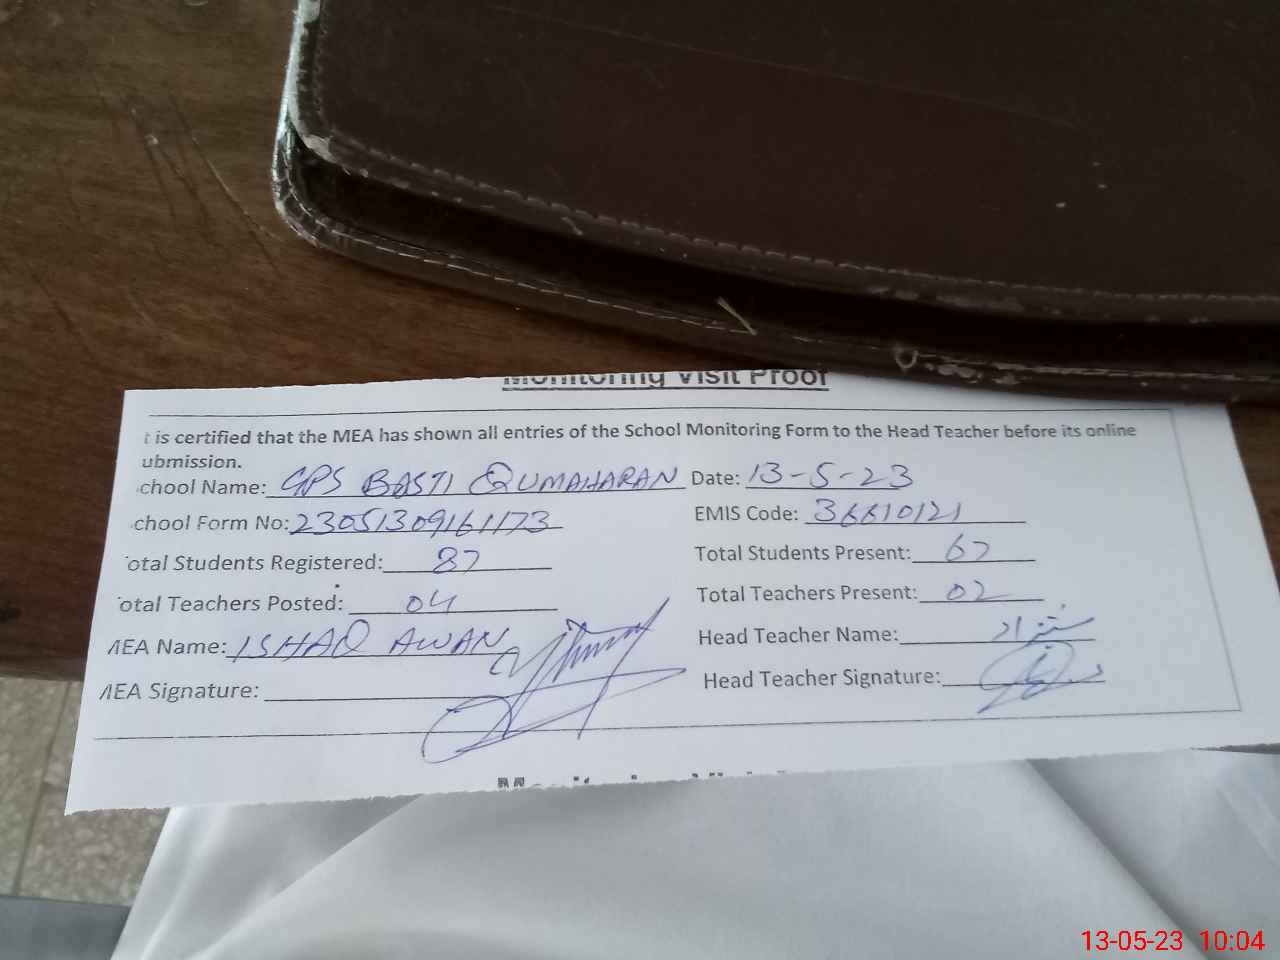 Monitoring Visit Proof
t is certified that the MEA has shown all entries of the School Monitoring Form to the Head Teacher before its online
ubmission.
chool Name: GPS BASTI QUMAHARAN Date: 13-5-23
chool Form No: 23051309161173 EMIS Code: 36610121
otal Students Registered: 87 Total Students Present: 67
otal Teachers Posted: 04 Total Teachers Present: 02
MEA Name: ISHAQ AWAN Head Teacher Name:
MEA Signature: Head Teacher Signature:
13-05-23 10:04